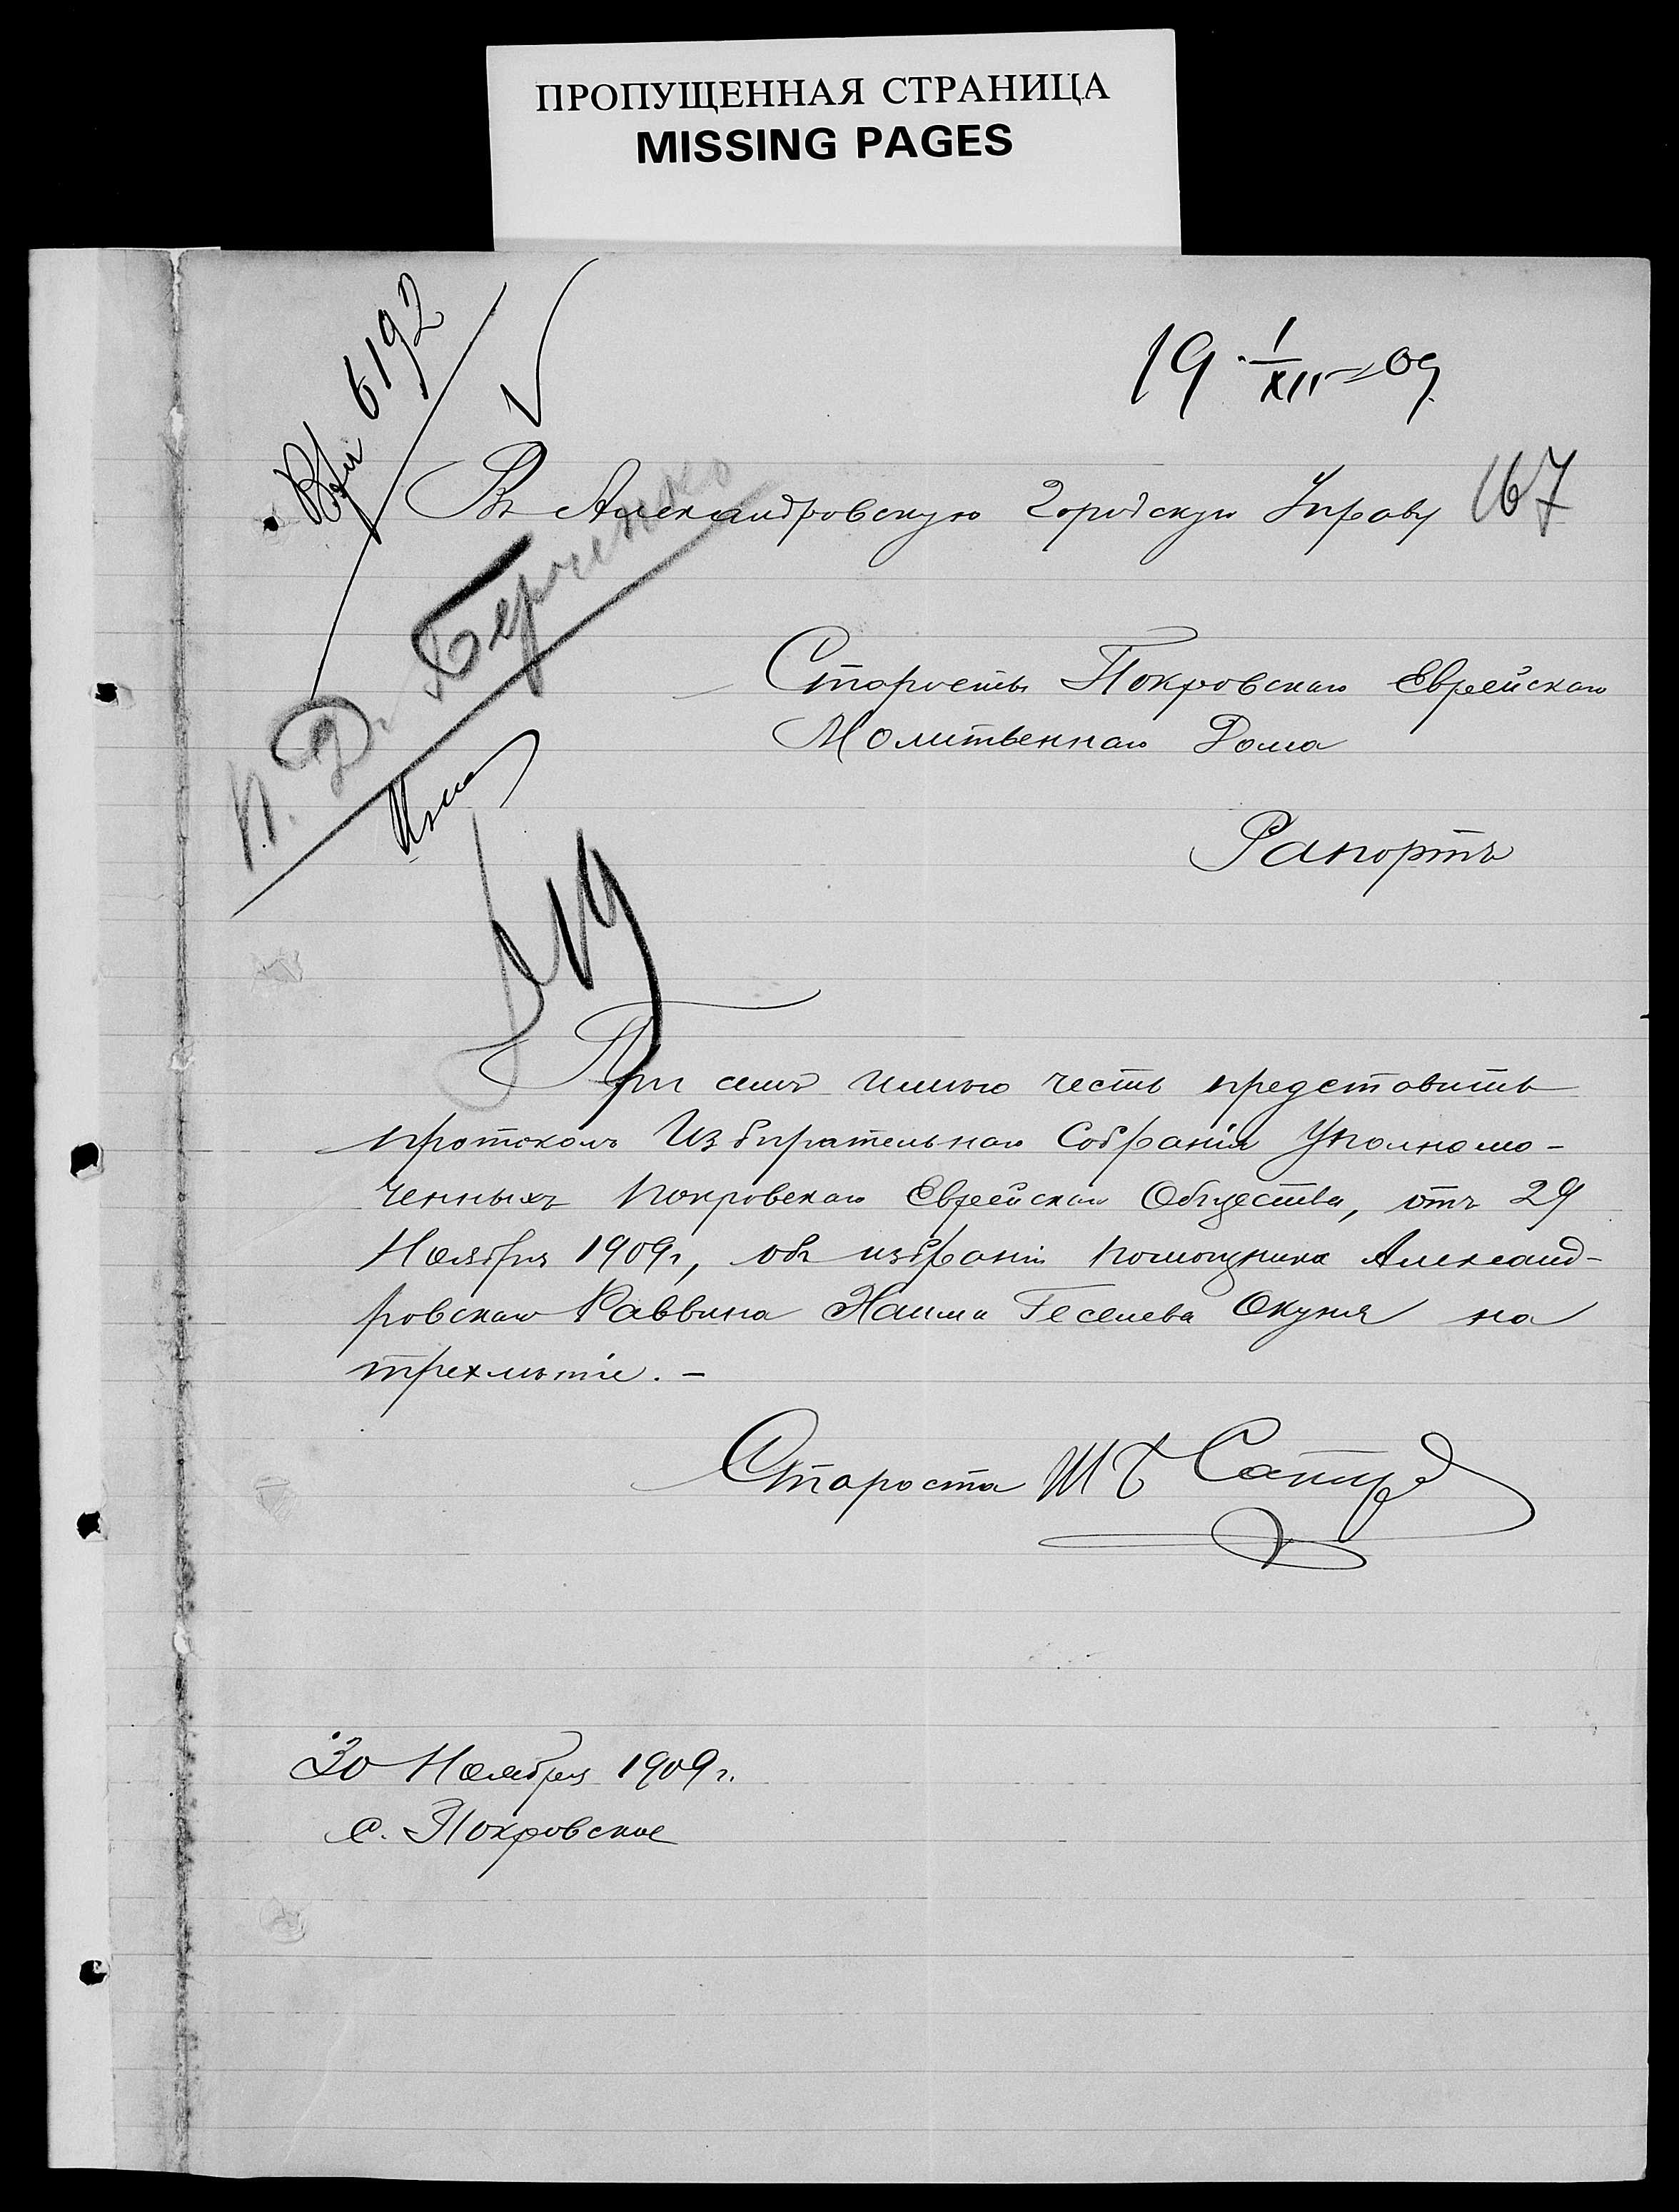 ПРОПУЩЕННАЯ СТРАНИЦА
MISSING PAGES
6192
19 1/XII 09
Въ Александровскую Городскую Управу 167
Старосты Покровскаго Еврейскаго
Молитвеннаго Дома
Рапортъ
При семъ имѣю честь представить
протоколъ Избирательнаго Собранія Уполномо-
ченныхъ Покровскаго Еврейскаго Общества, отъ 29
Ноября 1909г, объ избраніи помощника Александ-
ровскаго Раввина Хаима Геселева Окуня на
трехлѣтіе. –
Староста Ш Б
30 Ноября 1909 г.
с. Покровское